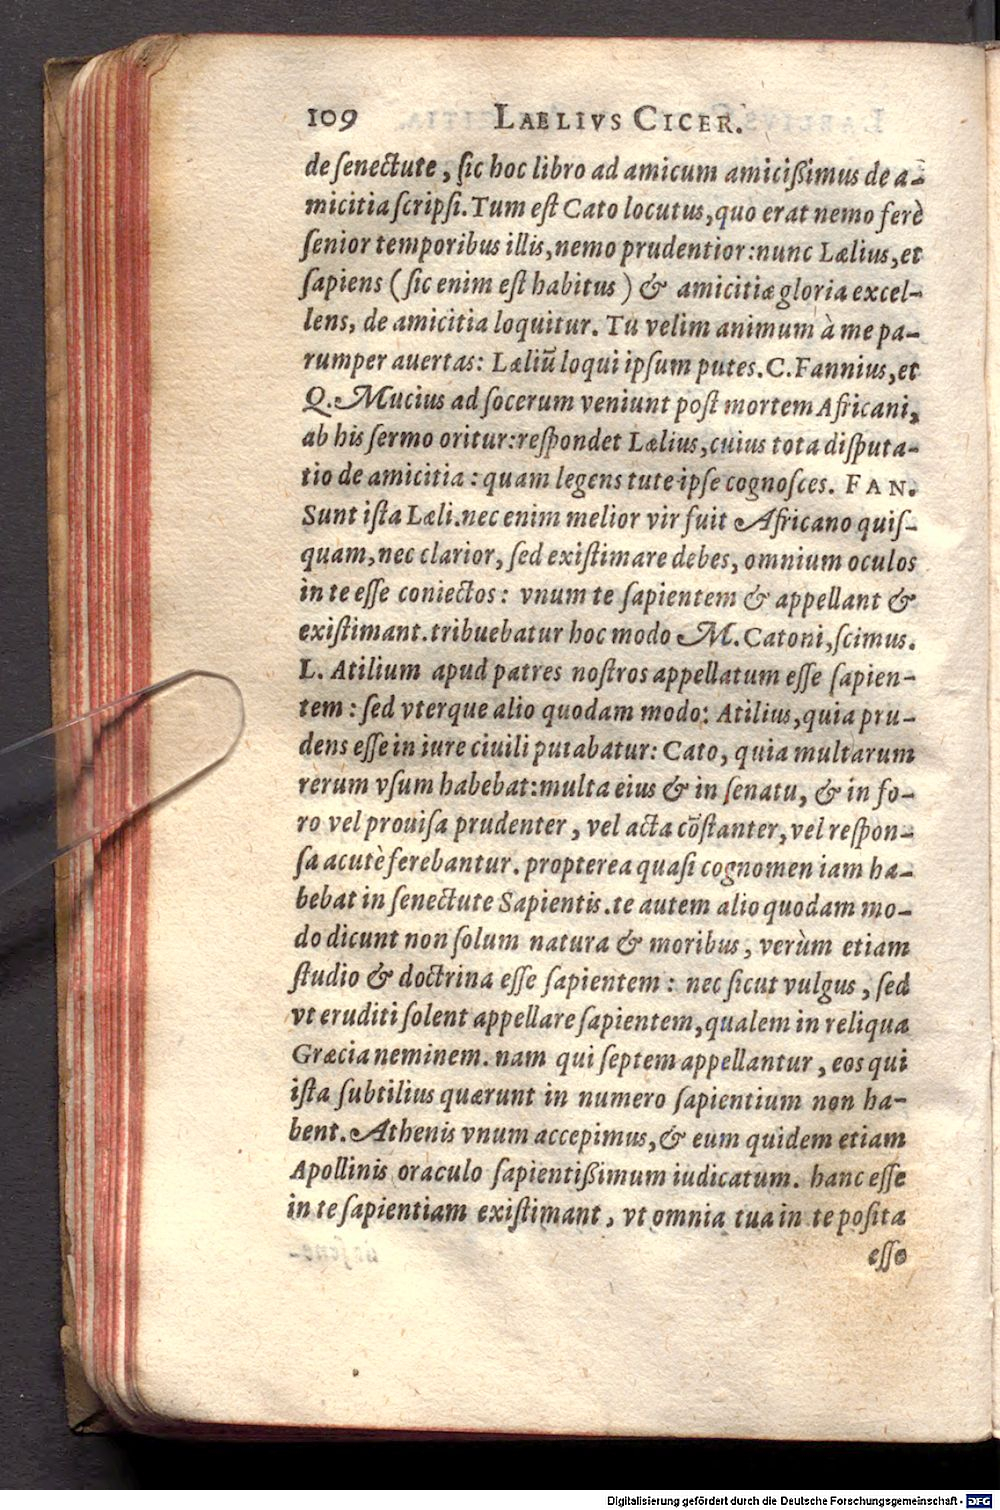 109 LAELIVS CICER.
de ſenectute, ſic hoc libro ad amicum amicißimus de a-
micitia ſcripſi. Tum eſt Cato locutus, quo erat nemo ferè
ſenior temporibus illis, nemo prudentior: nunc Lælius, et
ſapiens (ſic enim eſt habitus) & amicitiæ gloria excel-
lens, de amicitia loquitur. Tu velim animum à me pa-
rumper auertas: Læliū loqui ipſum putes. C. Fannius, et
Q. Mucius ad ſocerum veniunt poſt mortem Africani,
ab his ſermo oritur: reſpondet Lælius, cuius tota diſputa-
tio de amicitia: quam legens tute ipſe cognoſces. FAN.
Sunt iſta Læli. nec enim melior vir fuit Africano quiſ-
quam, nec clarior, ſed exiſtimare debes, omnium oculos
in te eſſe coniectos: vnum te ſapientem & appellant &
exiſtimant. tribuebatur hoc modo M. Catoni, ſcimus.
L. Atilium apud patres noſtros appellatum eſſe ſapien-
tem: ſed vterque alio quodam modo: Atilius, quia pru-
dens eſſe in iure ciuili putabatur: Cato, quia multarum
rerum vſum habebat: multa eius & in ſenatu, & in fo-
ro vel prouiſa prudenter, vel acta cōſtanter, vel reſpon-
ſa acutè ferebantur. propterea quaſi cognomen iam ha-
bebat in ſenectute Sapientis. te autem alio quodam mo-
do dicunt non ſolum natura & moribus, verùm etiam
ſtudio & doctrina eſſe ſapientem: nec ſicut vulgus, ſed
vt eruditi ſolent appellare ſapientem, qualem in reliqua
Græcia neminem. nam qui ſeptem appellantur, eos qui
iſta ſubtilius quærunt in numero ſapientium non ha-
bent. Athenis vnum accepimus, & eum quidem etiam
Apollinis oraculo ſapientißimum iudicatum. hanc eſſe
in te ſapientiam exiſtimant, vt omnia tua in te poſita
eſſe
Digitalisierung gefördert durch die Deutsche Forschungsgemeinschaft - DFG